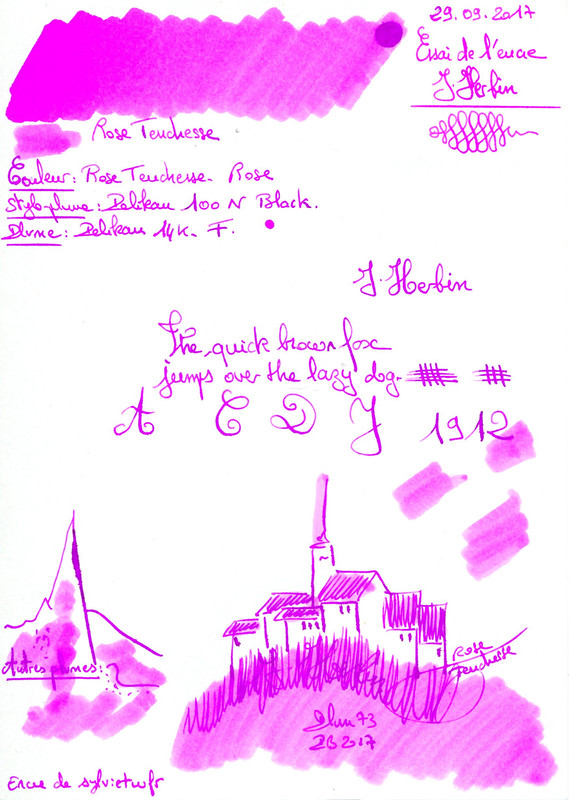 29.09.2017
Essai de l'encre
J Herbin
Rose Tendresse
Couleur: Rose Tendresse - Rose
Stylo-plume: Pelikan 100 N Black.
Plume: Pelikan 14K - F.
J. Herbin
The quick brown fox
jumps over the lazy dog.
A C D J 1912
Rose
Tendresse
Autres plumes:
73
2017
Encre de sylvietwfr